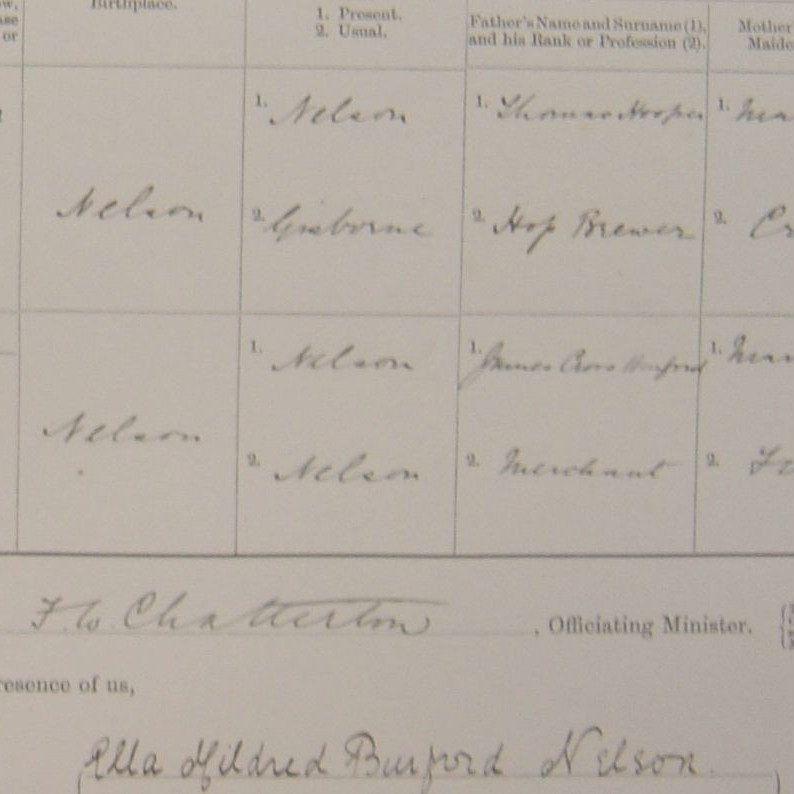 Birthplace. 1. Present. Father's Name and Surname (1), Mother
or 2. Usual. and his Rank or Profession (2). Maide
1. Nelson 1. Thomas Hooper 1.
Nelson 2. Gisborne 2. Hop Brewer 2. Cr
1. Nelson 1. James Cross Burford 1.
Nelson
2. Nelson 2. Merchant 2.
F. W. Chatterton , Officiating Minister.
resence of us,
Ella Mildred Burford Nelson.